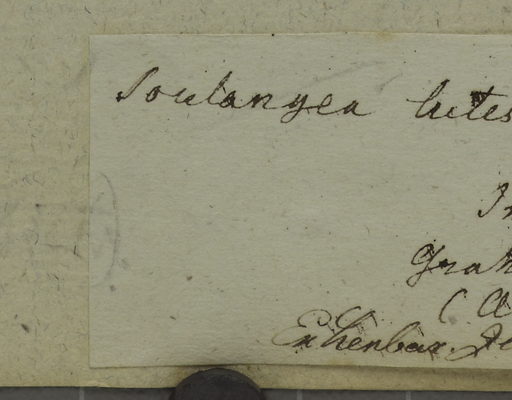 Soulangea lutes
In
Grah
(
Ex herbar.